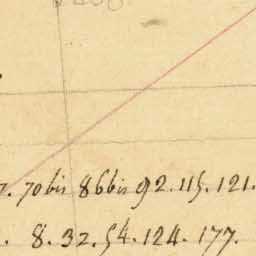 70 bis 86 bis 92. 115. 121.
8. 32. 54. 124. 177.